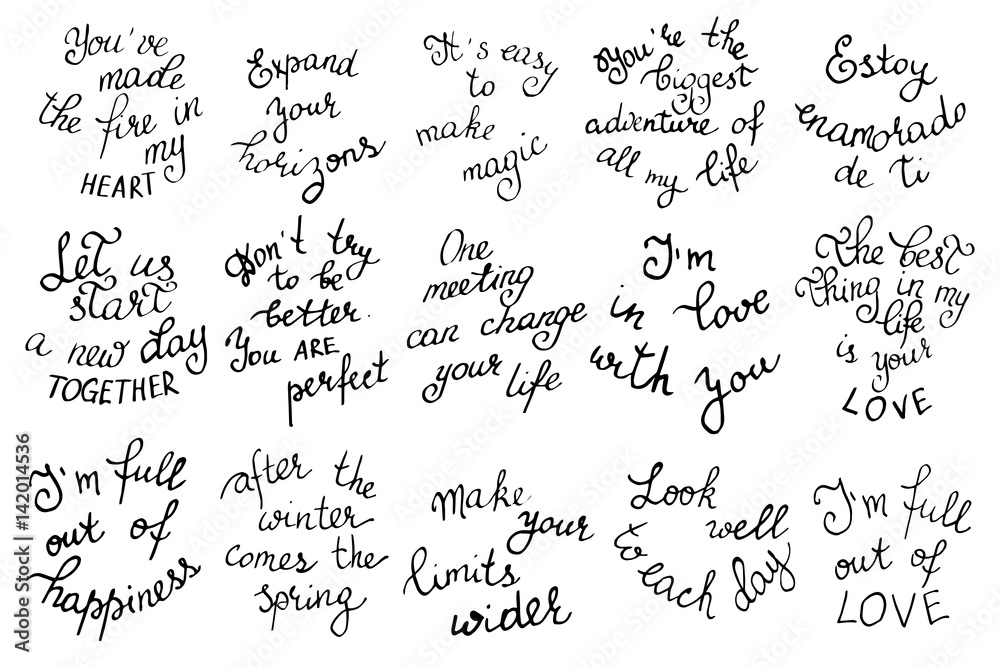 You've
made
the fire in
my
HEART
Expand
your
horizons
It's easy
to
make
magic
You're the
biggest
adventure of
all my life
Estoy
enamorado
de ti
Let us
start
a new day
TOGETHER
Don't try
to be
better.
You ARE
perfect
One
meeting
can change
your life
I'm
in love
with you
The best
thing in my
life
is your
LOVE
I'm full
out of
happiness
after the
winter
comes the
spring
Make
your
limits
wider
Look
well
to each day
I'm full
out of
LOVE
Adobe Stock | #142014536